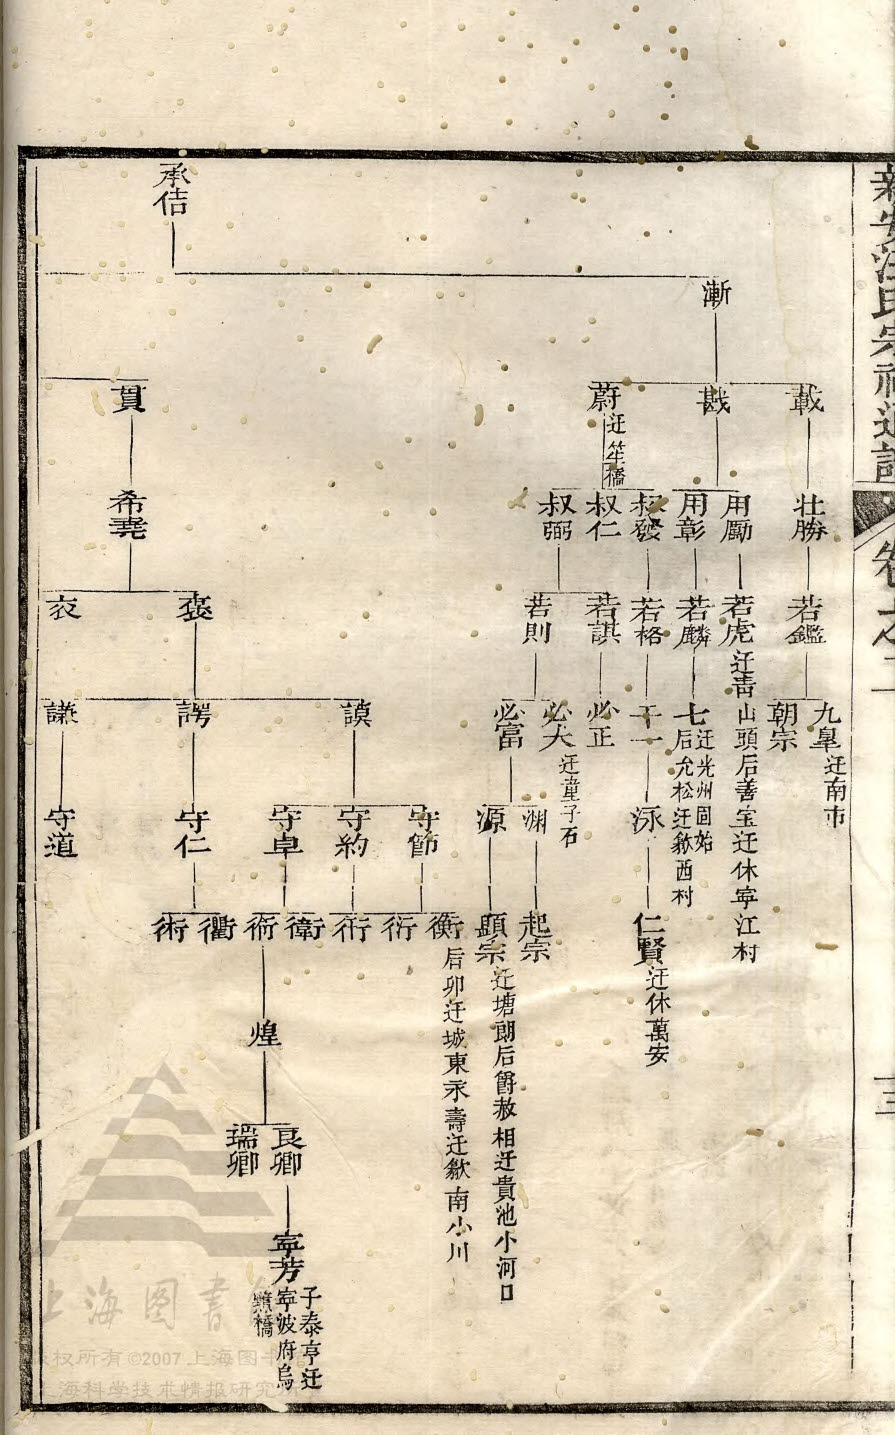 新安汪氏宗祠通譜
卷之二
三
承佶
漸
載
戡
蔚
迁笙橋
貫
壮勝
用勵
用彰
叔發
叔仁
叔弼
希堯
若鑑
若虎 迁青山頭后善宝迁休寧江村
若麟
若格
若諆
若則
褒
衣
九皐 迁南市
朝宗
七 迁光州固始
后允松迁歙西村
千一
必正
必大 迁童子石
必富
謨
諤
謙
泳
渊
源
守節
守約
守卓
守仁
守道
仁賢 迁休萬安
起宗
顕宗 迁塘朗后爵赦相迁貴池小河口
衡 后卯迁城東永壽迁歙南小川
衍
衎
衛
衕
衢
術
煌
良卿
瑞卿
寧芳
子泰亨迁
寧波府烏
橋
上海图书馆
版权所有©2007上海图书
上海科学技术情报研究